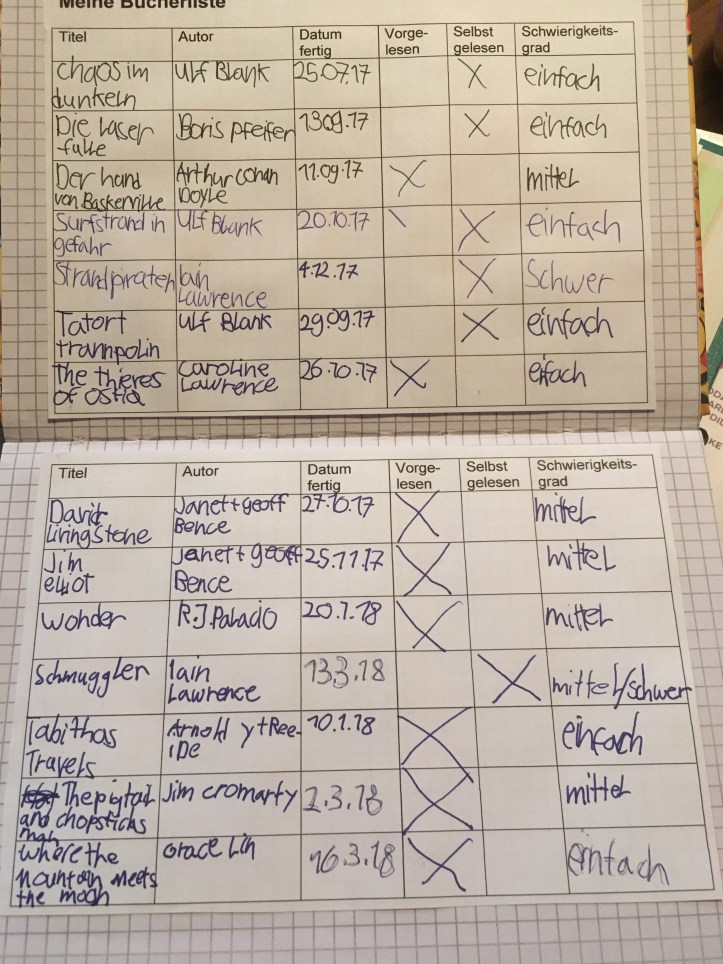 Meine Bücherliste
Titel Autor Datum fertig Vorge-lesen Selbst gelesen Schwierigkeits-grad
Chaos im dunkeln Ulf Blank 25.07.17 X einfach
Die laser falle Boris Pfeifer 13.09.17 X einfach
Der hand von Baskerville Arthur Conan Doyle 11.09.17 X mittel
Surfstrand in gefahr Ulf Blank 20.10.17 \ X einfach
Strandpiraten Iain Lawrence 4.12.17 X Schwer
Tatort trampolin Ulf Blank 29.09.17 X einfach
The thieres of ostia Caroline Lawrence 26.10.17 X eifach
Titel Autor Datum fertig Vorge-lesen Selbst gelesen Schwierigkeits-grad
David Livingstone Janet + geoff Bence 27.10.17 X mittel
Jim elliot Janet + geoff Bence 25.11.17 X mittel
Wonder R.J Palacio 20.1.18 X mittel
Schmuggler Iain Lawrence 13.3.18 X mittel/schwer
Tabithas Travels Arnold ytRee-IDe 10.1.18 X einfach
The pigtail and chopsticks man Jim cromarty 2.3.18 X mittel
Where the mountain meets the moon Grace Lin 16.3.18 X einfach